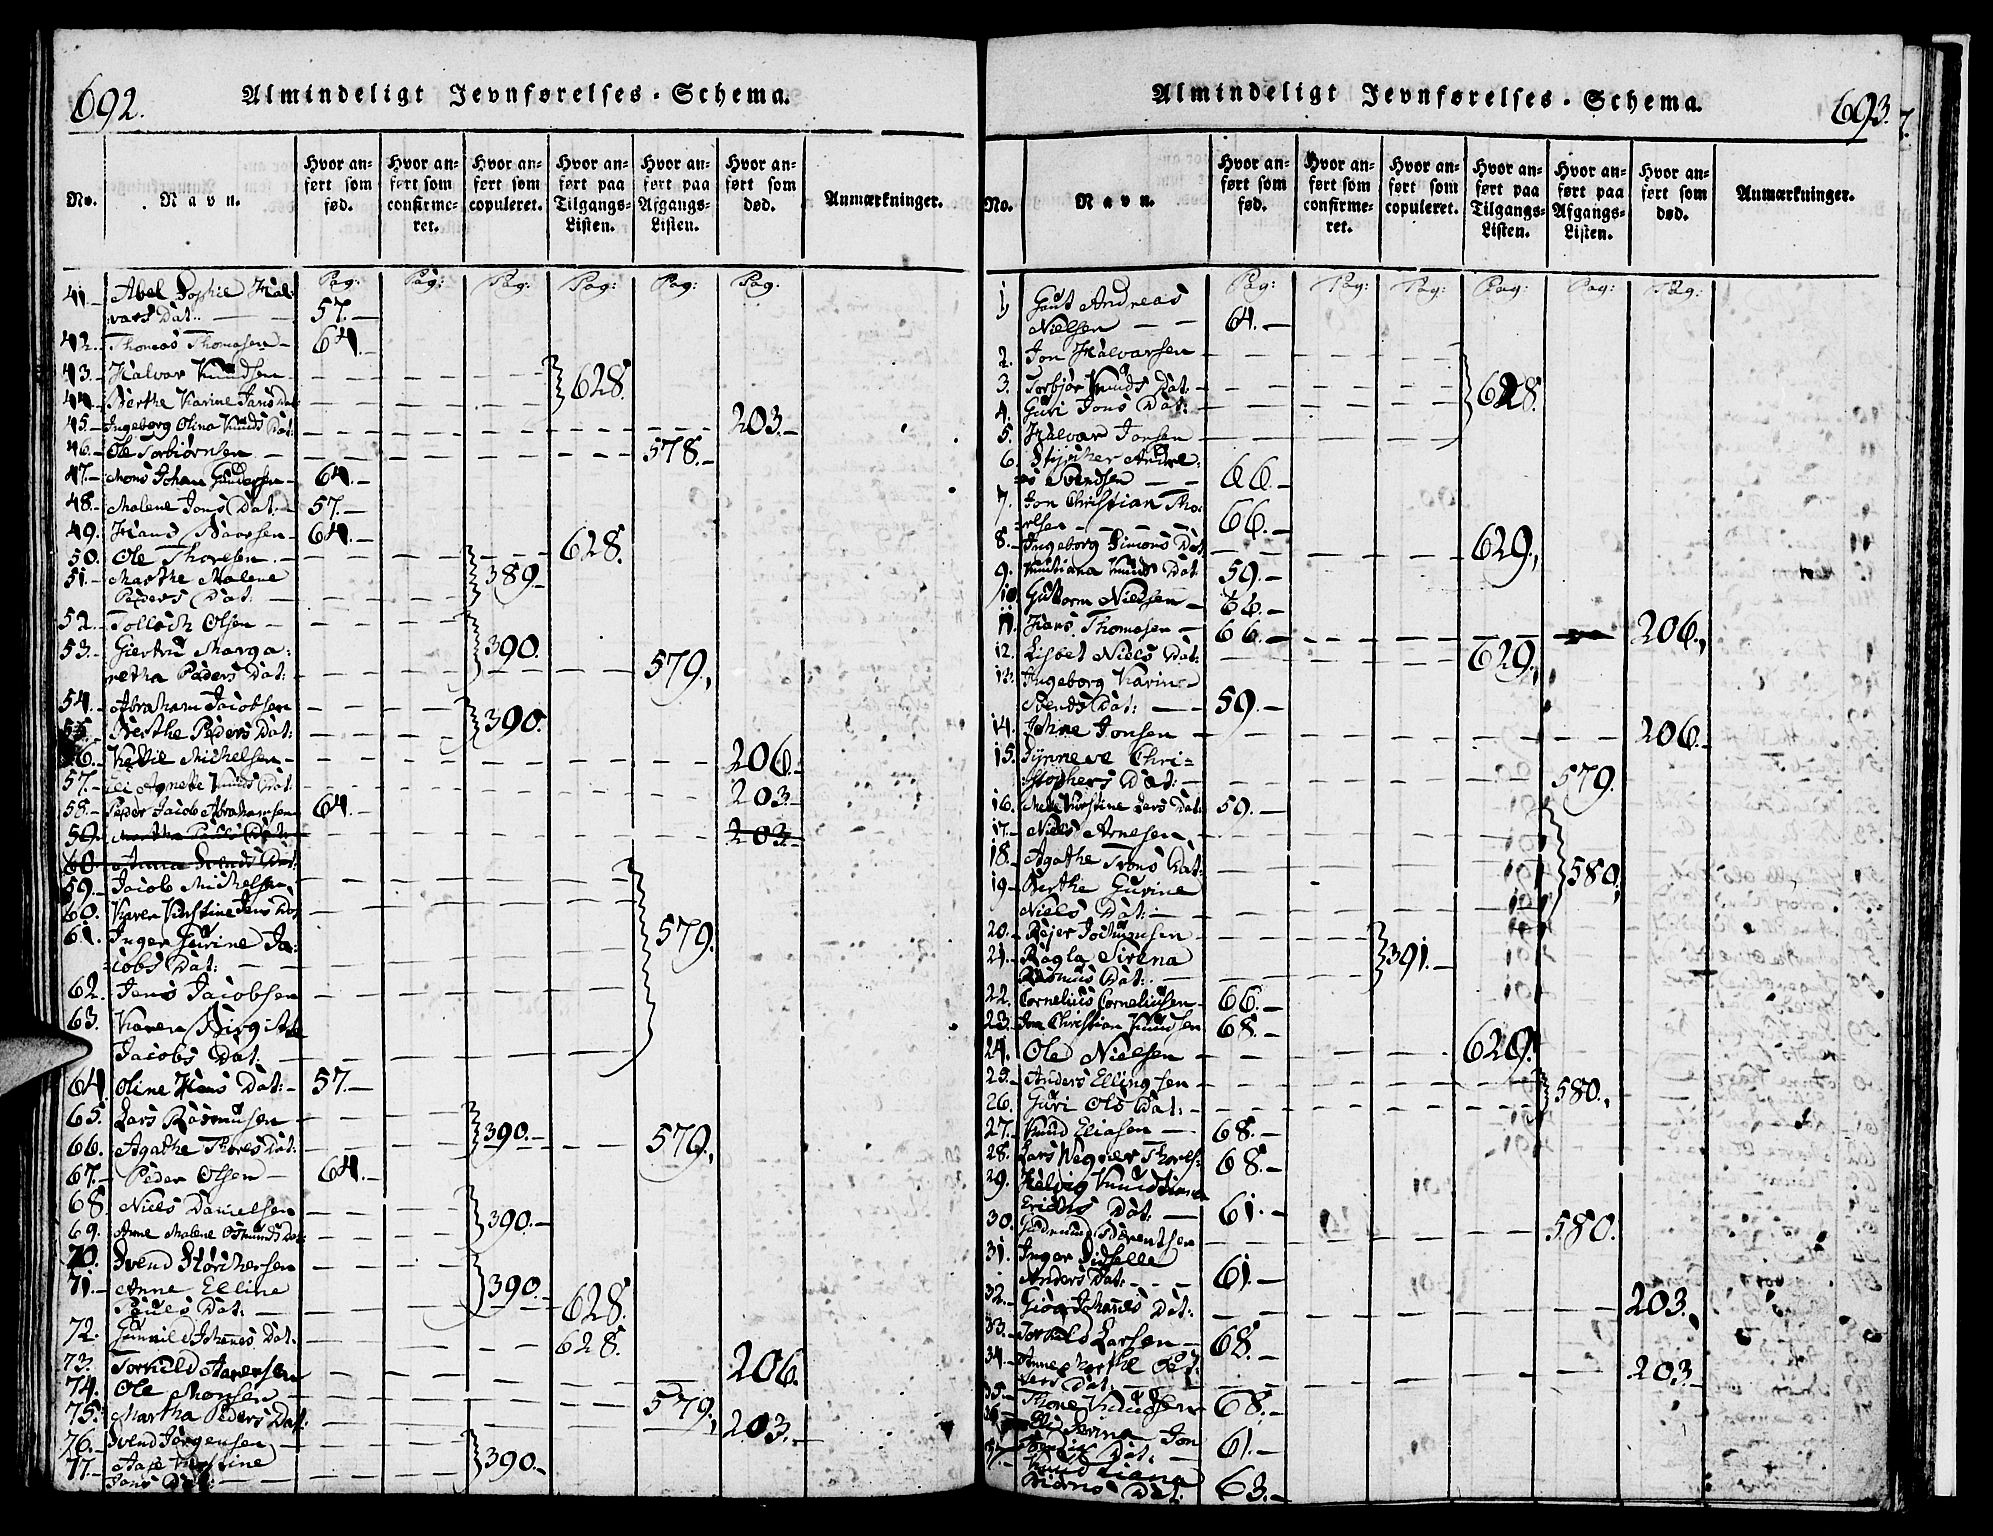 692.
Almindeligt Jevnførelses-Schema.
No.
Navn.
Hvor anført som fød.
Hvor anført som confirmeret.
Hvor anført som copuleret.
Hvor anført paa Tilgangs-Listen.
Hvor anført paa Afgangs-Listen.
Hvor anført som død.
Anmærkninger.
Pag: Pag: Pag: Pag: Pag: Pag.
41. Abel Sophie Hal:
vars Dat: 57.
42. Thomas Thomasen 64.
43. Halvor Knudsen 628.
44. Berthe Karine Jans Dat:
45. Ingeborg Olina Knuds Dat: 203.
46. Ole Torbiørnsen 578.
47. Mons Johan Gundersen 64.
48. Malene Jons Dat: 57.
49. Hans 64.
50. Ole Thorsen 628.
51. Marthe Malene 389.
Peders Dat:
52. Tollach Olsen
53. Giertru Marga: 390.
retha Peders Dat: 579.
54. Abraham Jacobsen
55. Berthe Peders Dat: 390.
56. Michelsen 206.
57. Agnete Knuds Dat: 203
58. Peder Jacob Abrahamsen 64.
59. Martha Dat: 203.
60. Anna Svends Dat:
59. Jacob Michelsen
60. Karen Kirstine Jens Dat
61. Inger Gurine Ja: 579.
cobs Dat:
62. Jens Jacobsen
63. Karen Birgitte
Jacobs Dat:
64. Oline Hans Dat: 57.
65. Lars Rasmusen
66. Agathe Thores Dat: 390. 579.
67. Peder Olsen 64.
68. Niels Danielsen
69. Anne Malene Osmunds Dat: 390.
70. Svend Størichersen
71. Anne Elline 390.
Pauls Dat: 628.
72. Gunnild Johannes Dat: 628.
73. Torkild Aanensen 206.
74. Ole Monsen 579.
75. Martha Peders Dat: 203.
76. Svend Jørgensen
77. Aase Kirstine 390.
Jons Dat:
693.
Almindeligt Jevnførelses-Schema.
No.
Navn.
Hvor anført som fød.
Hvor anført som confirmeret.
Hvor anført som copuleret.
Hvor anført paa Tilgangs-Listen.
Hvor anført paa Afgangs-Listen.
Hvor anført som død.
Anmærkninger.
Pag: Pag: Pag: Pag: Pag: Pag:
1. Gut Andreas
Nielsen 64.
2. Jon Halvorsen
3. Torbjør Knuds Dat: 628.
4. Guri Jons Dat:
5. Halvor Jonsen
6. Andre:
as Svendsen 66.
7. Jon Christian Tho:
rsen 66.
8. Ingeborg Simons Dat 629.
9. Knutiana Knuds Dat 59.
10 Guttorm Nielsen 66.
11. Hans Thomasen 66. 206.
12. Lisbet Niels Dat: 629.
13. Ingeborg Karine
Svends Dat: 59.
14. Johne Jonsen 206.
15. Synneve Chri=
stophers Dat: 579.
16. Mete Kirstine Lars Dat 59.
17. Niels Arnesen
18. Agathe Trons Dat: 580.
19. Berthe Gurine
Niels Dat:
20. Rejer Jochumsen
21. Ragla Sirena 391.
Rasmus Dat:
22. Cornelius Corneliusen 66.
23. Jon Christian Knudsen 68.
24. Ole Nielsen 629.
25. Anders Ellingsen 580.
26. Guri Ols Dat:
27. Knud Eliasen 68.
28. Lars Wegner Thorls: 68.
29. Helvig Knudtiana
Erichs Dat: 61.
30. Gudmund Sørentsen 580.
31. Inger Sidselle
Anders Dat: 61.
32. Johannes Dat: 203.
33. Torkild Larsen 68.
34. Anne Marthe Pe:
ders Dat: 203.
35. Thore Knudsen 68.
36. Serina Jon
Dat: 61.
37. Knud tiana
Biørns Dat: 63.